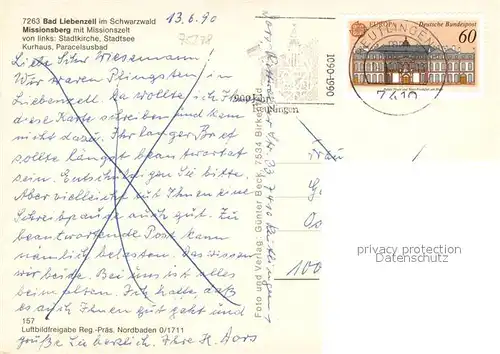 7263 Bad Liebenzell im Schwarzwald
Missionsberg mit Missionszelt
von links: Stadtkirche, Stadtsee
Kurhaus, Paracelsusbad
13.6.90
Liebe Schw. Wiesemann!
Wir waren Pfingsten in
Liebenzell. Da wollte ich Ihnen
diese Karte schreiben und kam
nicht dazu. Ihr langer Brief
sollte längst beantwortet
sein. Entschuldigen Sie bitte.
Aber vielleicht tut Ihnen eine
Schreibpause auch gut. Zu
beantwortende Post kann
nämlich belasten. Das wissen
wir beide. Bei uns ist alles
beim alten. Ich hoffe, daß
es auch Ihnen gut geht und
grüße Sie herzlich. Ihre H.
157
Luftbildfreigabe Reg.-Präs. Nordbaden 0/1711
Foto und Verlag: Günter Beck, 7534 Birkenfeld
1090-1990
900 Jahre
Reutlingen
REUTLINGEN
7410
EUROPA
Deutsche Bundespost
60
Frau
privacy protection
Datenschutz